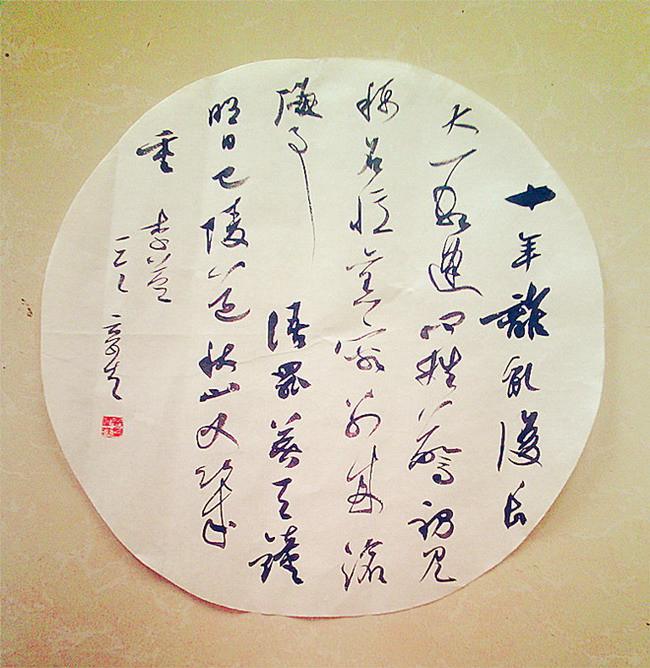 十年離亂後長
大一相逢问姓驚初見
称名憶舊容别来滄
海事 語罷暮天鐘
明日巴陵道秋山又幾
重 李益